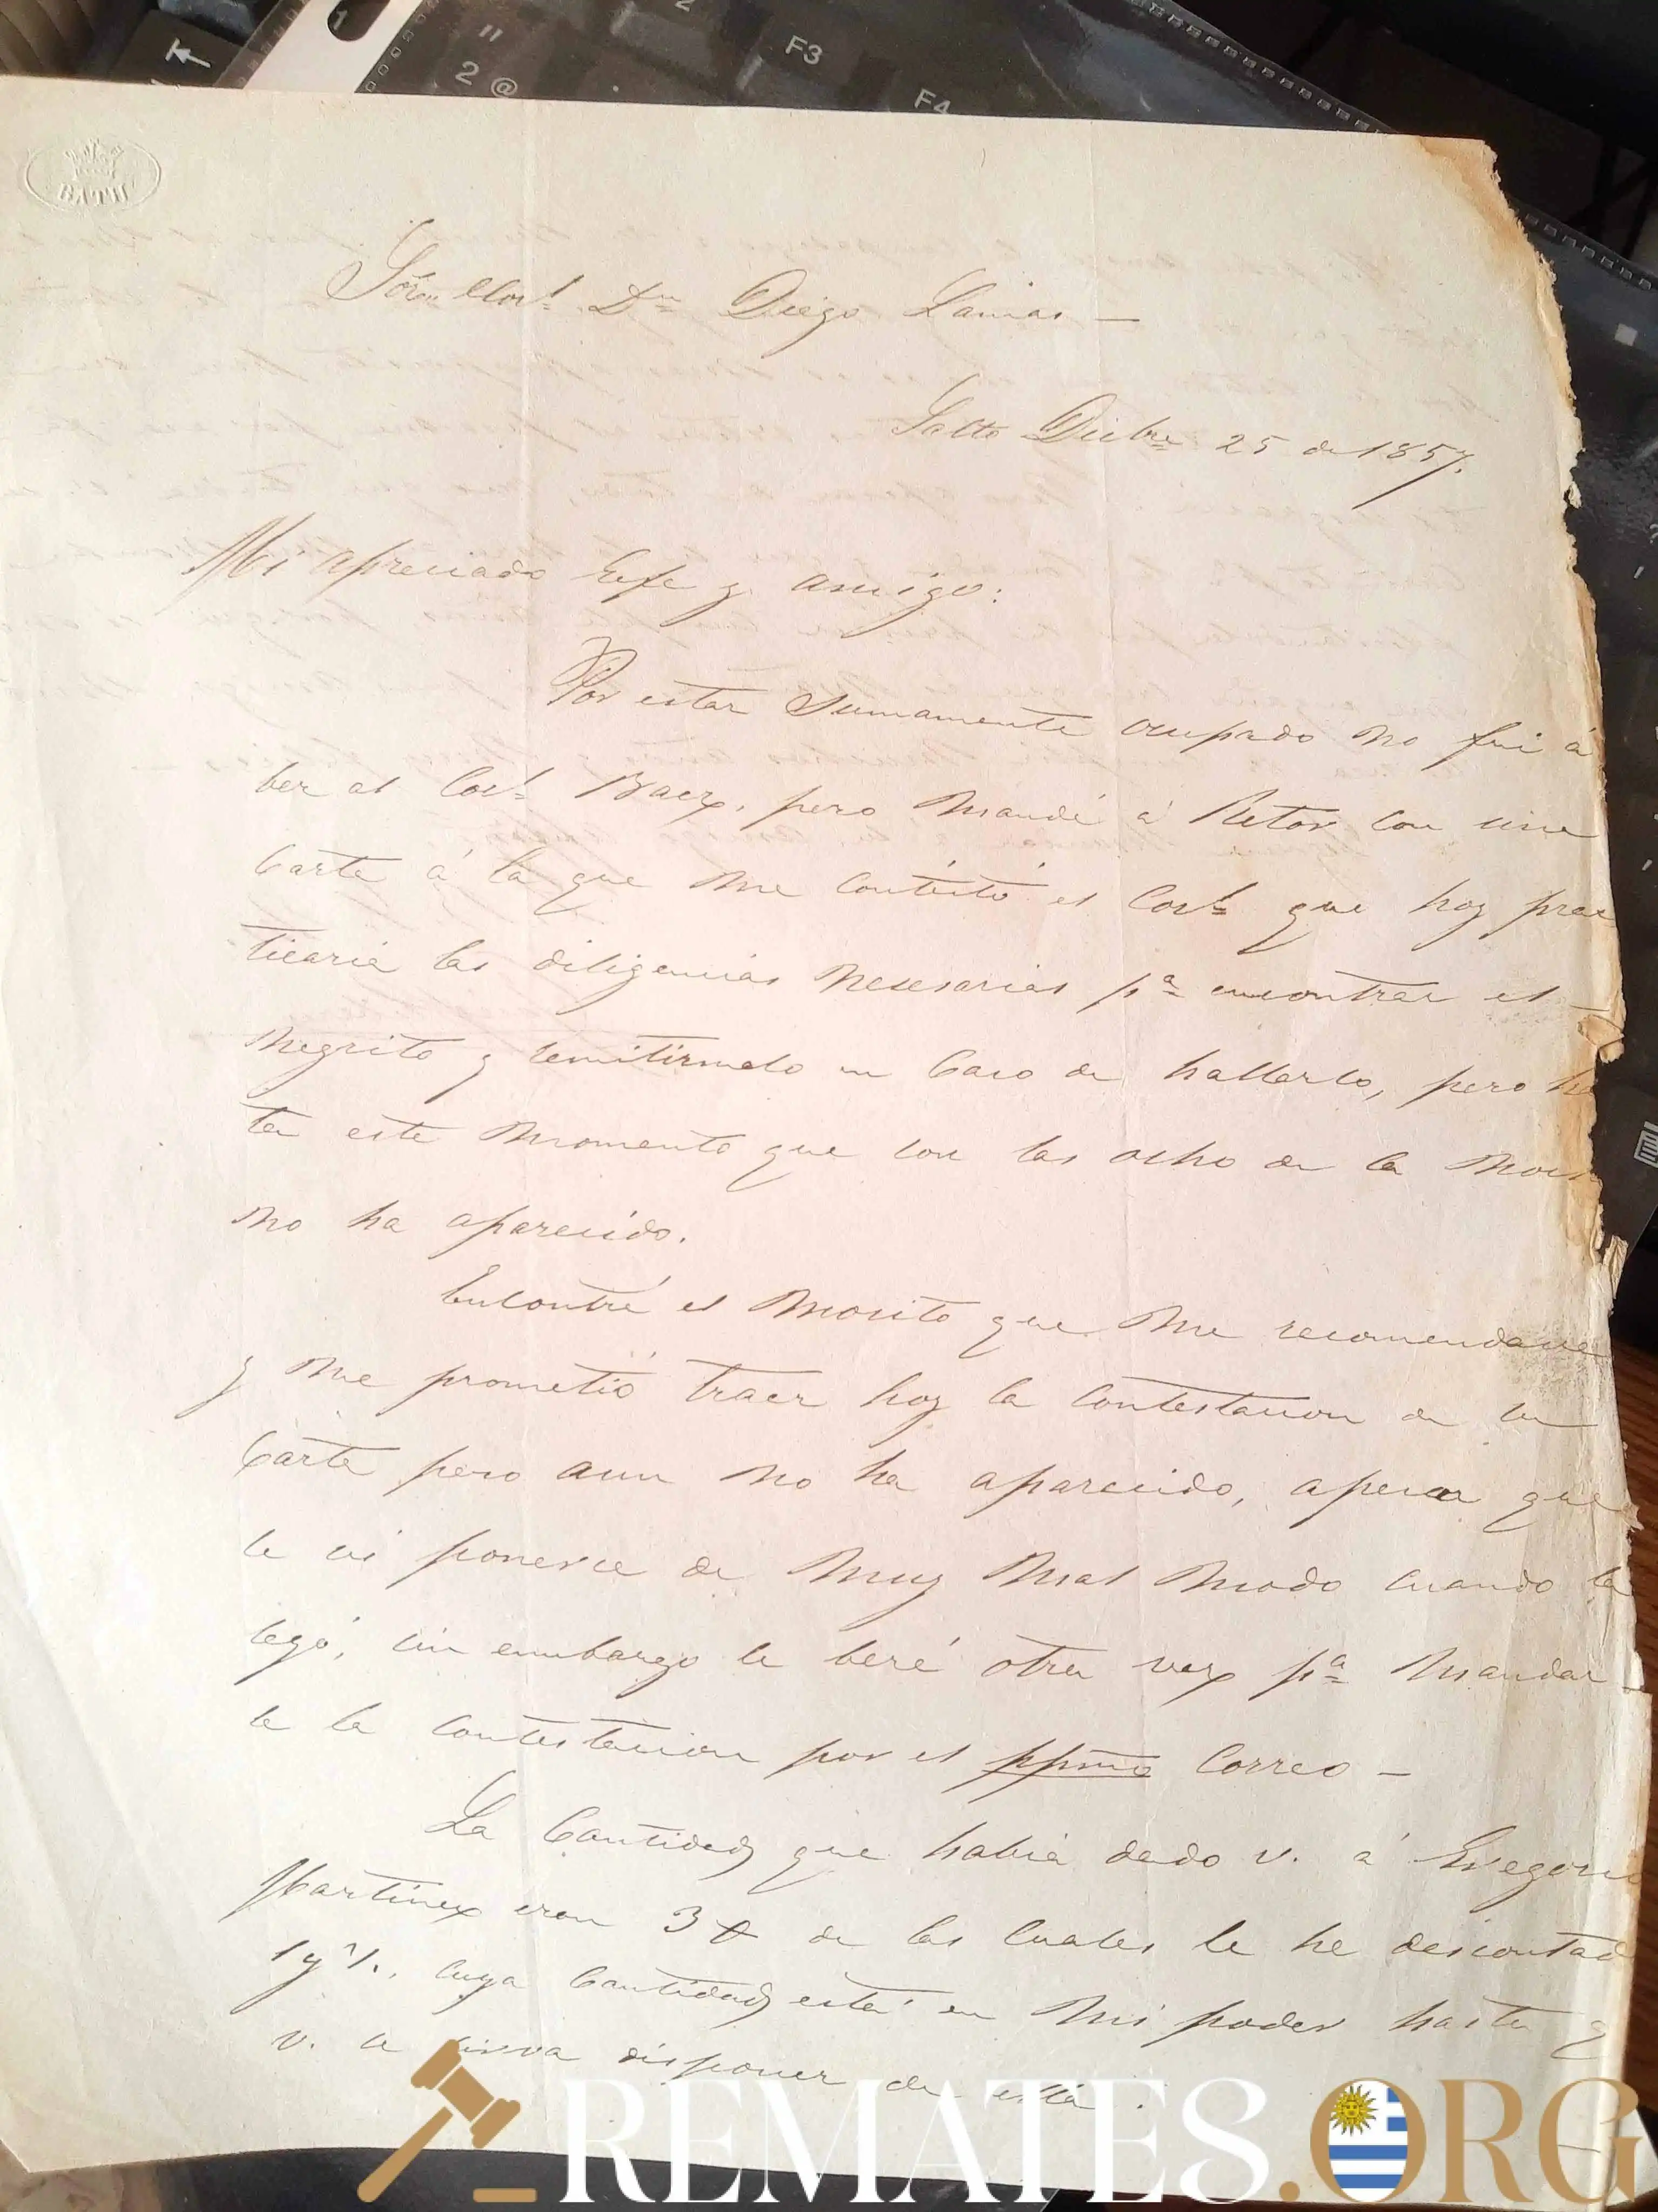 BATH
Señor Corl. Dn Diego Lamas —
Salto Dicbre 25 de 1857.
Mi apreciado Gefe y amigo:
Por estar sumamente ocupado no fui á
ber al Corl. Baez, pero mandé á Retor con una
Carta á la que me contestó el Corl. que hoy prac
ticaria las diligencias nesesarias pa. encontrar el
negrito y remitirmelo en caso de hallarlo, pero ha
ta este momento que son las ocho de la
no ha aparecido.
Encontré el Mosito que me
y me prometió traer hoy la contestacion de su
Carta pero aun no ha aparecido, apesar que
le vi ponerse de muy mal modo cuando la
sin embargo le beré otra vez pa. mandar-
le la contestacion por el ppmo Correo —
La Cantidad que habia dado V. á Gregorio
Martinez eran 3 de las cuales le he descontad
cuya Cantidad está en mi poder hasta q
V. se sirva disponer de ella.
REMATES.ORG
2 @
F3
F4